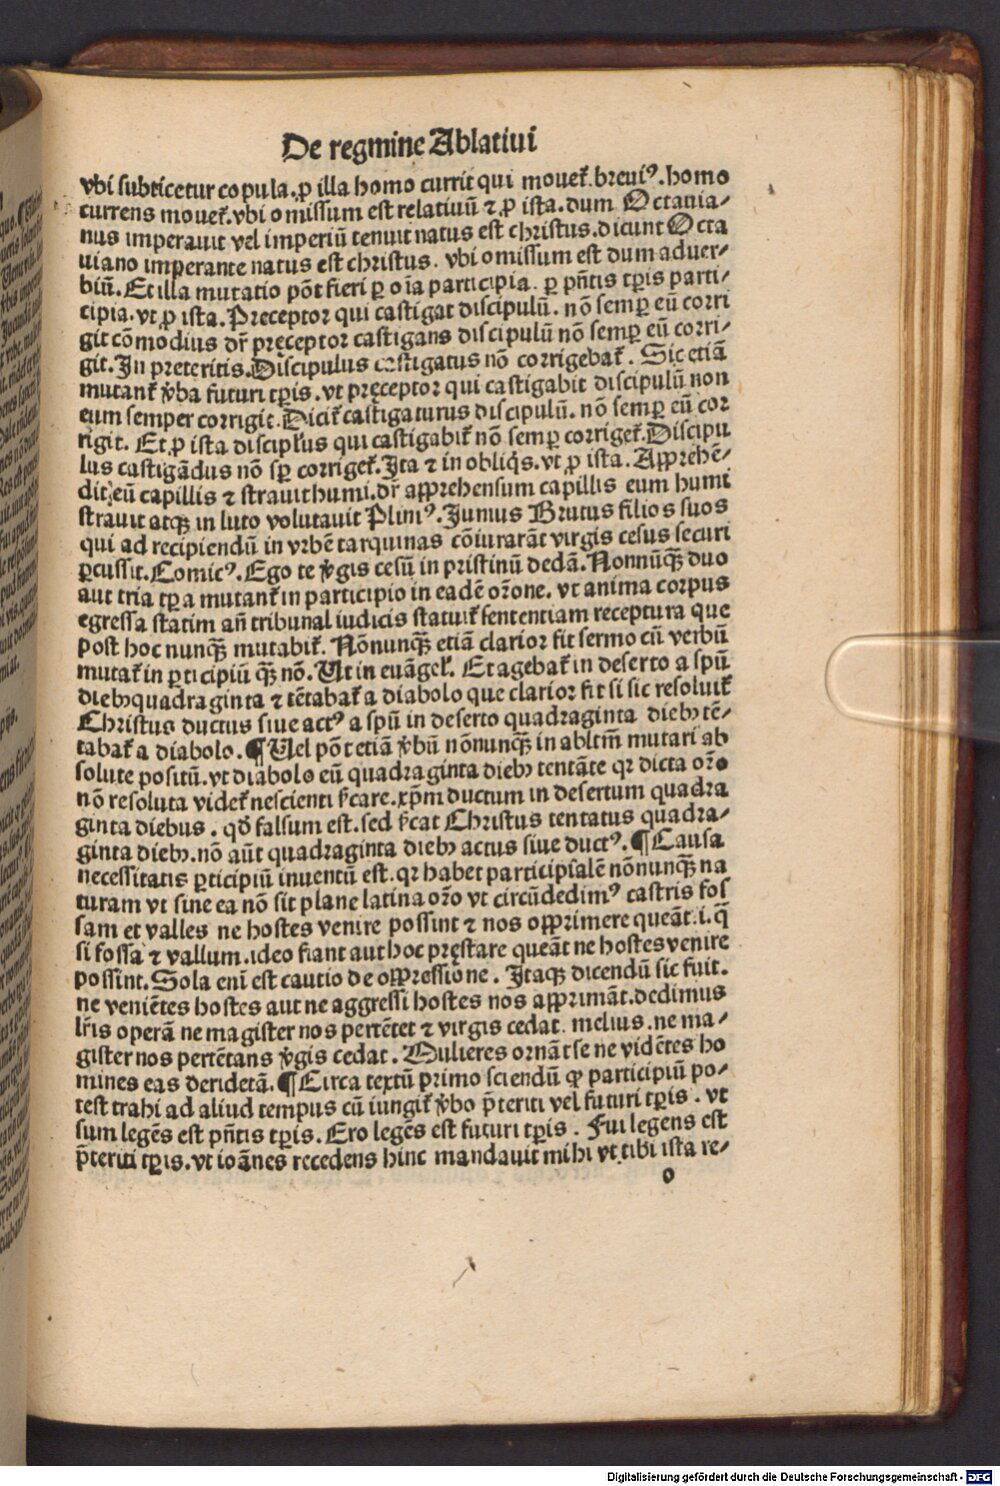 De regmine Ablatiui
vbi subticetur copula.ꝓ illa homo currit qui mouet̄.breui⁹.homo
currens mouet̄.vbi omissum est relatiuū ⁊ ꝓ ista.dum Octauia-
nus imperauit vel imperiū tenuit natus est christus.dicunt Octa
uiano imperante natus est christus. vbi omissum est dum aduer-
biū.Et illa mutatio pōt fieri ꝑ oīa participia. ꝑ pn̄tis tꝑis parti-
cipia.vt ꝓ ista.Preceptor qui castigat discipulū. nō semꝑ eū corri
git cōmodius dr̄ pręceptor castigans discipulū nō semꝑ eū corri-
git.In preteritis.Discipulus castigatus nō corrigebat̄. Sic etiā
mutant̄ v̄ba futuri tꝑis.vt pręceptor qui castigabit discipulū non
eum semper corrigit.Dicit̄ castigaturus discipulū.nō semꝑ eū cor
rigit. Et ꝓ ista discipłus qui castigabit̄ nō semꝑ corriget̄.Discipu
lus castigādus nō sꝑ corriget̄.Ita ⁊ in obliq̄s.vt ꝓ ista.Apprehē-
dit eū capillis ⁊ strauit humi.dr̄ apprehensum capillis eum humi
strauit atqꝫ in luto volutauit Plini⁹.Junius Brutus filios suos
qui ad recipiendū in vrbē tarquinas cōiurarāt virgis cesus securi
ꝑcussit.Comic⁹.Ego te v̄gis cesū in pristinū dedā.Nonnūqꝫ duo
aut tria tꝑa mutant̄ in participio in eadē or̄one.vt anima corpus
egressa statim an̄ tribunal iudicis statuit̄ sententiam receptura que
post hoc nunqꝫ mutabit̄. Nōnunqꝫ etiā clarior fit sermo cū verbū
mutat̄ in ꝑticipiū qꝫ nō.Ut in euāgeł. Et agebat̄ in deserto a spū
diebꝫ quadraginta ⁊ tētabat̄ a diabolo que clarior fit si sic resoluit̄
Christus ductus siue act⁹ a spū in deserto quadraginta diebꝫ tē-
tabat̄ a diabolo.¶Uel pōt etiā v̄bū nōnunqꝫ in abltm̄ mutari ab
solute positū.vt diabolo eū quadraginta diebꝫ tentāte qꝛ dicta or̄o
nō resoluta videt̄ nescienti s̄care.xp̄m ductum in desertum quadra
ginta diebus. qd̄ falsum est.sed s̄cat Christus tentatus quadra-
ginta diebꝫ.nō aūt quadraginta diebꝫ actus siue duct⁹.¶Causa
necessitatis ꝑticipiū inuentū est.qꝛ habet participialē nōnunqꝫ na
turam vt sine ea nō sit plane latina or̄o vt circūdedim⁹ castris fos
sam et valles ne hostes venire possint ⁊ nos opprimere queāt.i.q̄
si fossa ⁊ vallum.ideo fiant aut hoc pręstare queāt ne hostes venire
possint.Sola eni est cautio de oppressione. Itaqꝫ dicendū sic fuit.
ne veniētes hostes aut ne aggressi hostes nos apprimāt.dedimus
lr̄is operā ne magister nos pertētet ⁊ virgis cedat. melius.ne ma-
gister nos pertētans v̄gis cedat. Mulieres ornāt se ne vidētes ho
mines eas derideāt.¶Circa textū primo sciendū ꝙ participiū po-
test trahi ad aliud tempus cū iungit̄ v̄bo p̄teriti vel futuri tꝑis. vt
sum legēs est pn̄tis tꝑis.Ero legēs est futuri tꝑis. Fui legens est
p̄teriti tꝑis.vt ioānes recedens hinc mandauit mihi vt tibi ista re-
o
Digitalisierung gefördert durch die Deutsche Forschungsgemeinschaft - DFG